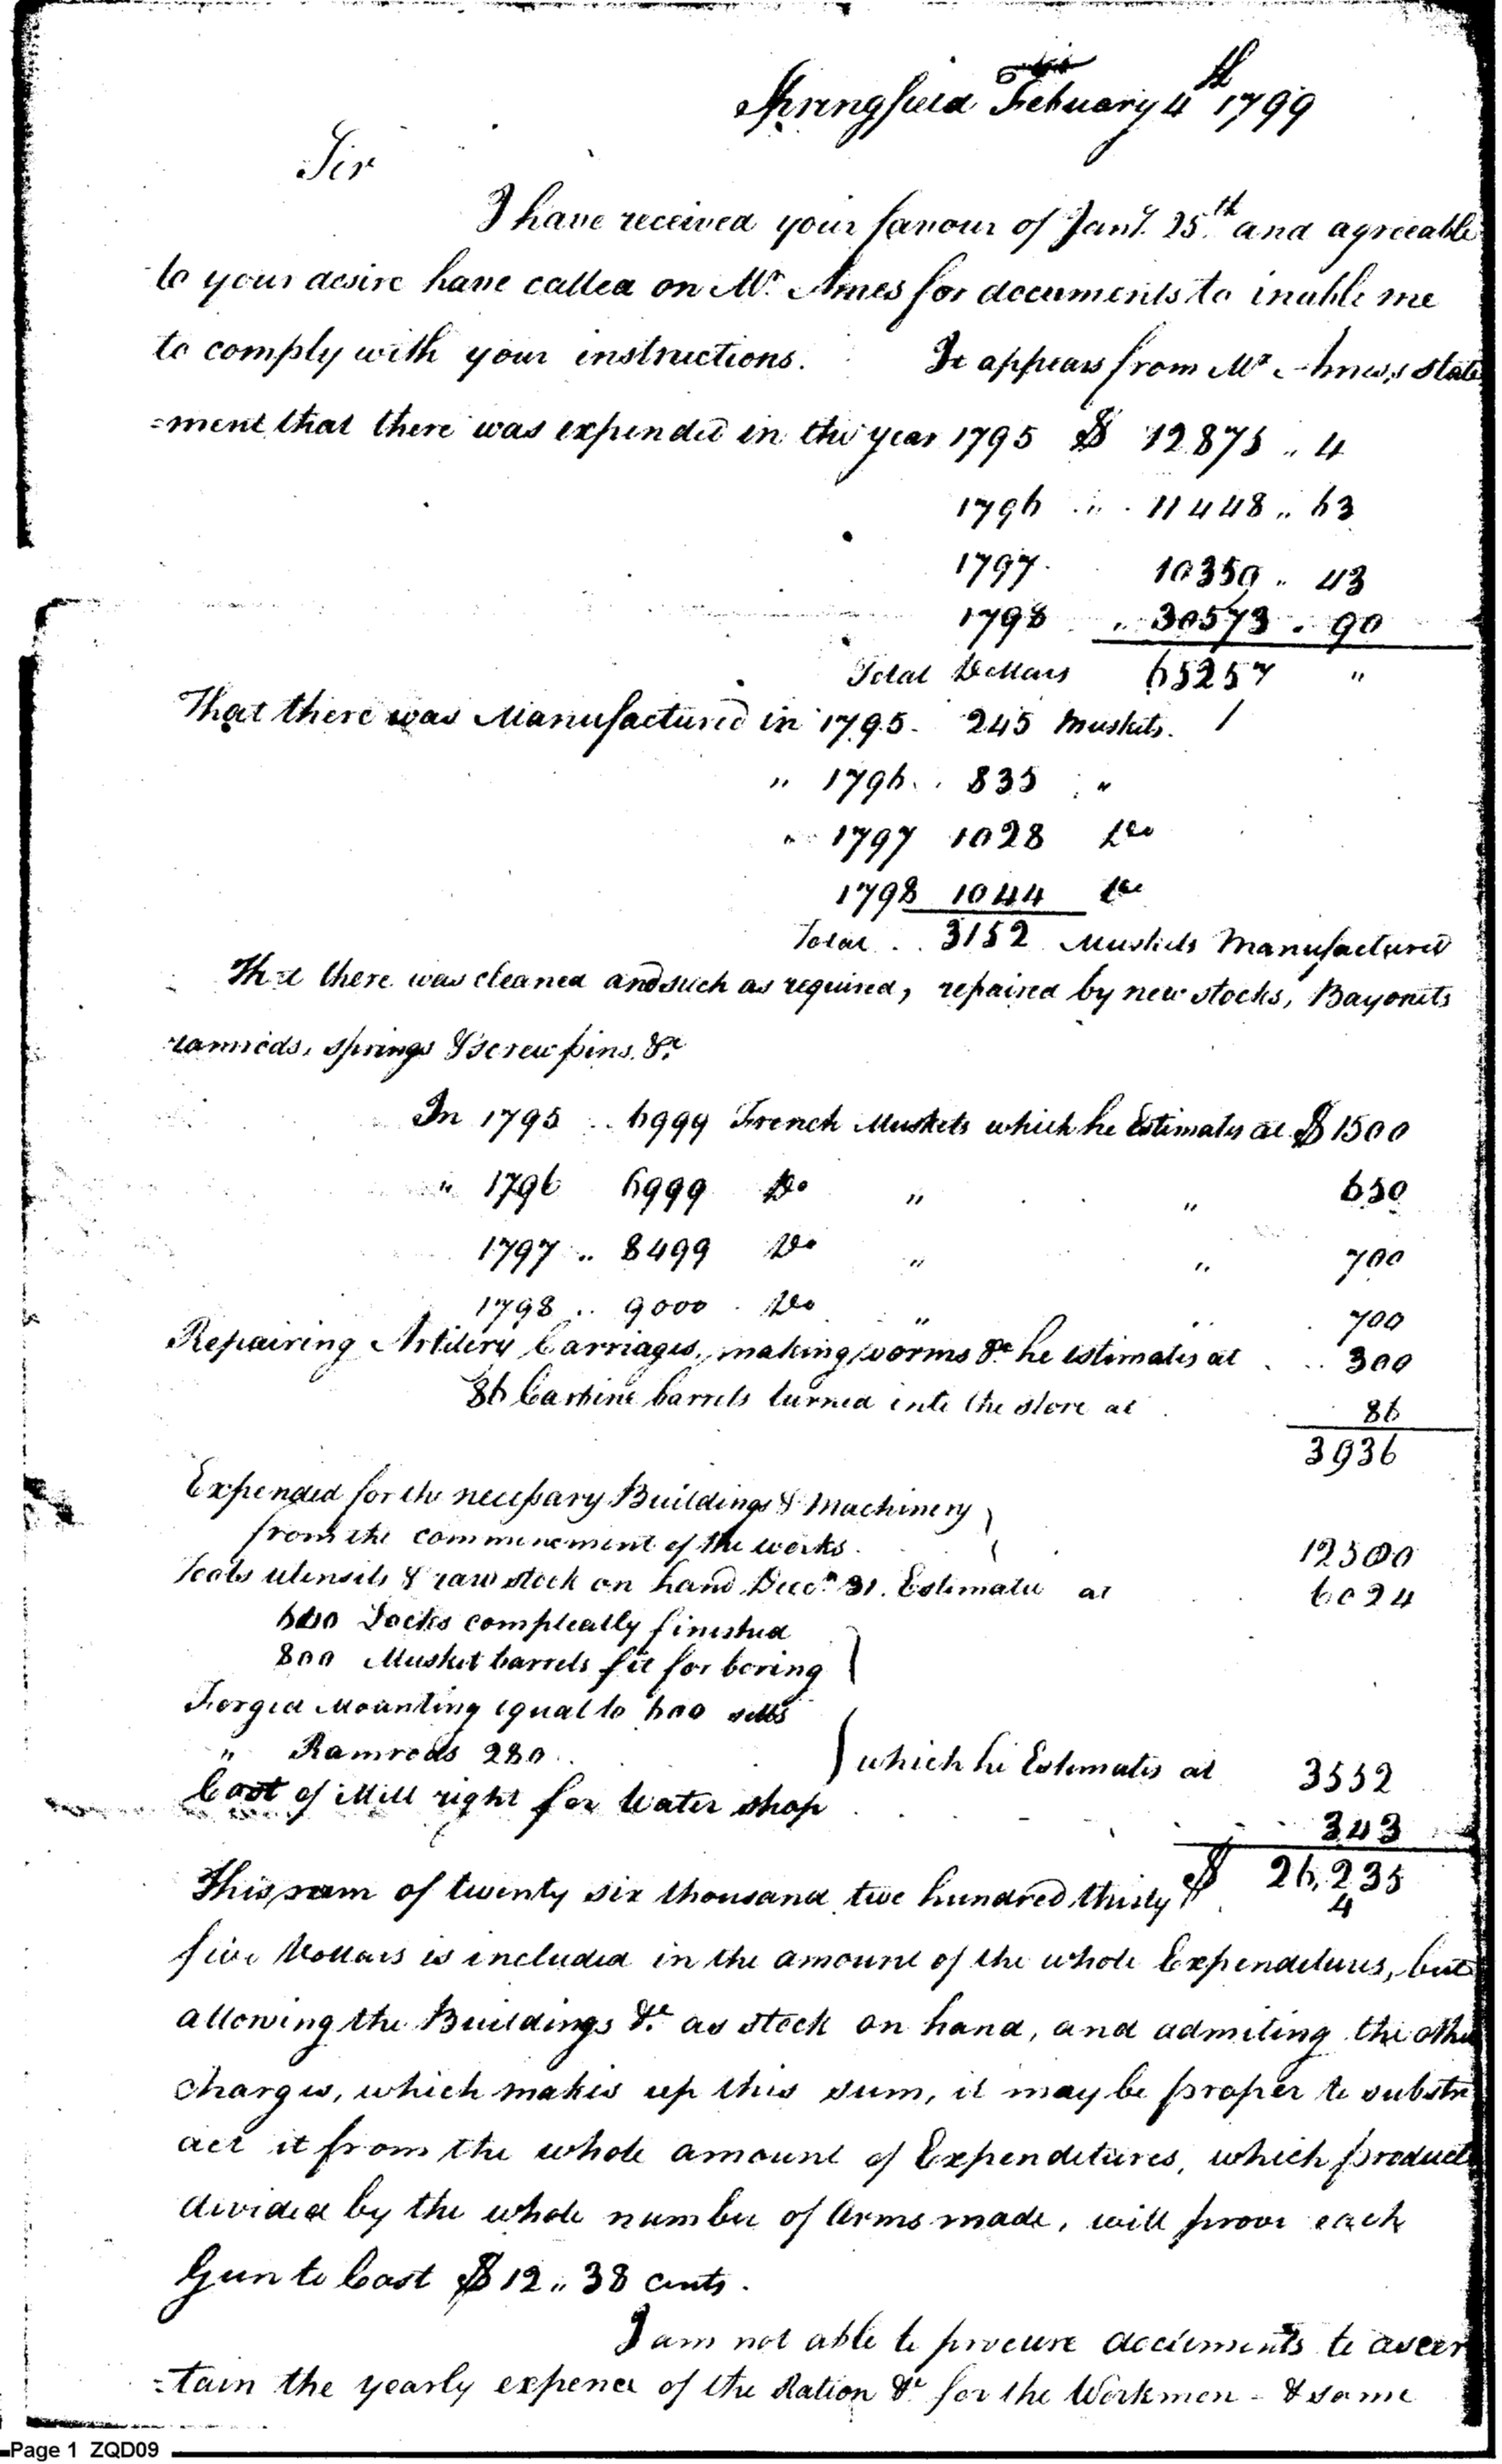 Springfield Febuary 4th 1799
Sir
I have received your favour of Jany. 25th and agreeable
to your desire have called on Mr. Ames for documents to inable me
to comply with your instructions. It appears from Mr Ames,s state
=ment that there was expended in the year 1795 $ 12875 .. 4
1796 .. 11448 .. 63
1797 10359 .. 43
1798 .. 30573 . 90
Total Dollars 65257 "
That there was Manufactured in 1795. 245 Muskets.
" 1796 .. 835 "
" 1797 1028 Do
1798 1044 Do
Total .. 3152 Muskets Manufactured
That there was cleaned and such as required, repaired by new stocks, Bayonets
ramrods, springs & screw pins. &c
In 1795 .. 6999 French Muskets which he Estimates at $ 1500
" 1796 6999 Do " " 650
1797 .. 8499 Do " " 700
1798 .. 9000 . Do " " 700
Repairing Artilery Carriages, making worms &c he estimates at 300
86 Carbine barrels turned into the store at 86
3936
Expended for the necessary Buildings & Machinery
from the commencement of the works. 12500
Tools utensils & raw stock on hand Decr. 31. Estimate at 6024
600 Locks compleatly finished
800 Musket barrels fit for boring
Forged Mounting equal to 600 setts
" Ramrods 280 .. which he Estimates at 3552
Cost of Mill right for Water shop 343
$ 26,235
4
This sum of twenty six thousand two hundred thirty
five Dollars is included in the amount of the whole Expenditures, but
allowing the Buildings &c. as stock on hand, and admiting the other
charges, which makes up this sum, it may be proper to substr
act it from the whole amount of Expenditures, which product
divided by the whole number of Arms made, will prove each
Gun to Cost $ 12 .. 38 cents.
I am not able to procure documents to ascer
=tain the yearly expence of the Ration &c for the Workmen - & some
Page 1 ZQD09